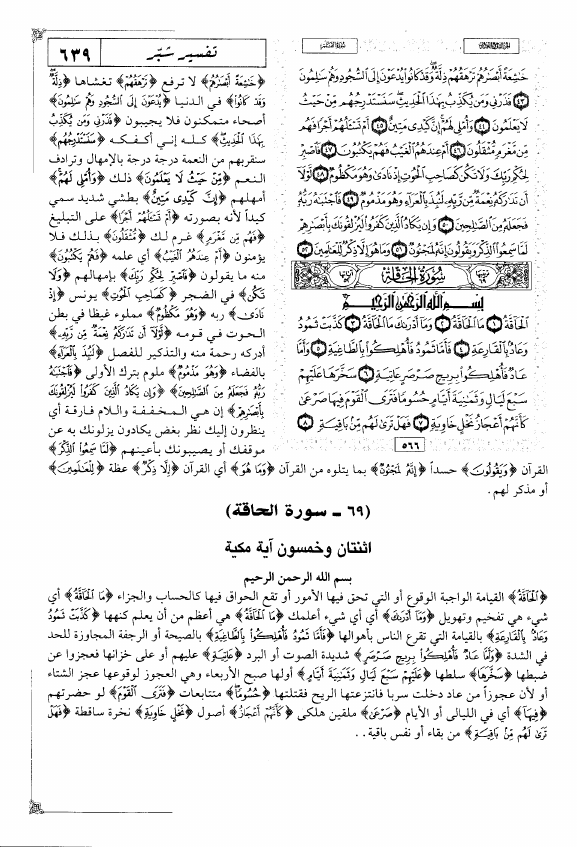 تفسير شبّر
٦٣٩
خَٰشِعَةً أَبْصَٰرُهُمْ تَرْهَقُهُمْ ذِلَّةٌ وَقَدْ كَانُوا۟ يُدْعَوْنَ إِلَى ٱلسُّجُودِ وَهُمْ سَٰلِمُونَ
٤٣ فَذَرْنِى وَمَن يُكَذِّبُ بِهَٰذَا ٱلْحَدِيثِ سَنَسْتَدْرِجُهُم مِّنْ حَيْثُ
لَا يَعْلَمُونَ ٤٤ وَأُمْلِى لَهُمْ إِنَّ كَيْدِى مَتِينٌ ٤٥ أَمْ تَسْـَٔلُهُمْ أَجْرًا فَهُم
مِّن مَّغْرَمٍ مُّثْقَلُونَ ٤٦ أَمْ عِندَهُمُ ٱلْغَيْبُ فَهُمْ يَكْتُبُونَ ٤٧ فَٱصْبِرْ
لِحُكْمِ رَبِّكَ وَلَا تَكُن كَصَاحِبِ ٱلْحُوتِ إِذْ نَادَىٰ وَهُوَ مَكْظُومٌ ٤٨ لَّوْلَآ
أَن تَدَٰرَكَهُۥ نِعْمَةٌ مِّن رَّبِّهِۦ لَنُبِذَ بِٱلْعَرَآءِ وَهُوَ مَذْمُومٌ ٤٩ فَٱجْتَبَٰهُ رَبُّهُۥ
فَجَعَلَهُۥ مِنَ ٱلصَّٰلِحِينَ ٥٠ وَإِن يَكَادُ ٱلَّذِينَ كَفَرُوا۟ لَيُزْلِقُونَكَ بِأَبْصَٰرِهِمْ
لَمَّا سَمِعُوا۟ ٱلذِّكْرَ وَيَقُولُونَ إِنَّهُۥ لَمَجْنُونٌ ٥١ وَمَا هُوَ إِلَّا ذِكْرٌ لِّلْعَٰلَمِينَ ٥٢
سُورَةُ الْحَاقَّةِ
بِسْمِ ٱللَّهِ ٱلرَّحْمَٰنِ ٱلرَّحِيمِ
ٱلْحَآقَّةُ ١ مَا ٱلْحَآقَّةُ ٢ وَمَآ أَدْرَىٰكَ مَا ٱلْحَآقَّةُ ٣ كَذَّبَتْ ثَمُودُ
وَعَادٌۢ بِٱلْقَارِعَةِ ٤ فَأَمَّا ثَمُودُ فَأُهْلِكُوا۟ بِٱلطَّاغِيَةِ ٥ وَأَمَّا
عَادٌ فَأُهْلِكُوا۟ بِرِيحٍ صَرْصَرٍ عَاتِيَةٍ ٦ سَخَّرَهَا عَلَيْهِمْ
سَبْعَ لَيَالٍ وَثَمَٰنِيَةَ أَيَّامٍ حُسُومًا فَتَرَى ٱلْقَوْمَ فِيهَا صَرْعَىٰ
كَأَنَّهُمْ أَعْجَازُ نَخْلٍ خَاوِيَةٍ ٧ فَهَلْ تَرَىٰ لَهُم مِّنۢ بَاقِيَةٍ ٨
٥٦٦
﴿خَٰشِعَةً أَبْصَٰرُهُمْ﴾ لا ترفع ﴿تَرْهَقُهُمْ﴾ تغشاها ﴿ذِلَّةٌ
وَقَدْ كَانُوا۟﴾ في الدنيا ﴿يُدْعَوْنَ إِلَى ٱلسُّجُودِ وَهُمْ سَٰلِمُونَ﴾
أصحاء متمكنون فلا يجيبون ﴿فَذَرْنِى وَمَن يُكَذِّبُ
بِهَٰذَا ٱلْحَدِيثِ﴾ كله إني أكفكه ﴿سَنَسْتَدْرِجُهُم﴾
سنقربهم من النعمة درجة درجة بالإمهال وترادف
النعم ﴿مِّنْ حَيْثُ لَا يَعْلَمُونَ﴾ ذلك ﴿وَأُمْلِى لَهُمْ﴾
أمهلهم ﴿إِنَّ كَيْدِى مَتِينٌ﴾ بطشي شديد سمي
كيداً لأنه بصورته ﴿أَمْ تَسْـَٔلُهُمْ أَجْرًا﴾ على التبليغ
﴿فَهُم مِّن مَّغْرَمٍ﴾ غرم لك ﴿مُّثْقَلُونَ﴾ بذلك فلا
يؤمنون ﴿أَمْ عِندَهُمُ ٱلْغَيْبُ﴾ أي علمه ﴿فَهُمْ يَكْتُبُونَ﴾
منه ما يقولون ﴿فَٱصْبِرْ لِحُكْمِ رَبِّكَ﴾ بإمهالهم ﴿وَلَا
تَكُن﴾ في الضجر ﴿كَصَاحِبِ ٱلْحُوتِ﴾ يونس ﴿إِذْ
نَادَىٰ﴾ ربه ﴿وَهُوَ مَكْظُومٌ﴾ مملوء غيظا في بطن
الحوت في قومه ﴿لَّوْلَآ أَن تَدَٰرَكَهُۥ نِعْمَةٌ مِّن رَّبِّهِۦ﴾
أدركه رحمة منه والتذكير للفصل ﴿لَنُبِذَ بِٱلْعَرَآءِ﴾
بالفضاء ﴿وَهُوَ مَذْمُومٌ﴾ ملوم بترك الأولى ﴿فَٱجْتَبَٰهُ
رَبُّهُۥ فَجَعَلَهُۥ مِنَ ٱلصَّٰلِحِينَ﴾ ﴿وَإِن يَكَادُ ٱلَّذِينَ كَفَرُوا۟ لَيُزْلِقُونَكَ
بِأَبْصَٰرِهِمْ﴾ إن هي المخففة واللام فارقة أي
ينظرون إليك نظر بغض يكادون يزلونك به عن
موقفك أو يصيبونك بأعينهم ﴿لَمَّا سَمِعُوا۟ ٱلذِّكْرَ﴾
القرآن ﴿وَيَقُولُونَ﴾ حسداً ﴿إِنَّهُۥ لَمَجْنُونٌ﴾ بما يتلوه من القرآن ﴿وَمَا هُوَ﴾ أي القرآن ﴿إِلَّا ذِكْرٌ﴾ عظة ﴿لِّلْعَٰلَمِينَ﴾
أو مذكر لهم.
(٦٩ - سورة الحاقة)
اثنتان وخمسون آية مكية
بسم الله الرحمن الرحيم
﴿ٱلْحَآقَّةُ﴾ القيامة الواجبة الوقوع أو التي تحق فيها الأمور أو تقع الحواق فيها كالحساب والجزاء ﴿مَا ٱلْحَآقَّةُ﴾ أي
شيء هي تفخيم وتهويل ﴿وَمَآ أَدْرَىٰكَ﴾ أي أي شيء أعلمك ﴿مَا ٱلْحَآقَّةُ﴾ هي أعظم من أن يعلم كنهها ﴿كَذَّبَتْ ثَمُودُ
وَعَادٌۢ بِٱلْقَارِعَةِ﴾ بالقيامة التي تقرع الناس بأهوالها ﴿فَأَمَّا ثَمُودُ فَأُهْلِكُوا۟ بِٱلطَّاغِيَةِ﴾ بالصيحة أو الرجفة المجاوزة للحد
في الشدة ﴿وَأَمَّا عَادٌ فَأُهْلِكُوا۟ بِرِيحٍ صَرْصَرٍ﴾ شديدة الصوت أو البرد ﴿عَاتِيَةٍ﴾ عليهم أو على خزانها فعجزوا عن
ضبطها ﴿سَخَّرَهَا﴾ سلطها ﴿عَلَيْهِمْ سَبْعَ لَيَالٍ وَثَمَٰنِيَةَ أَيَّامٍ﴾ أولها صبح الأربعاء وهي العجوز لوقوعها عجز الشتاء
أو لأن عجوزاً من عاد دخلت سربا فانتزعتها الريح فقتلتها ﴿حُسُومًا﴾ متتابعات ﴿فَتَرَى ٱلْقَوْمَ﴾ لو حضرتهم
﴿فِيهَا﴾ أي في الليالي أو الأيام ﴿صَرْعَىٰ﴾ ملقين هلكى ﴿كَأَنَّهُمْ أَعْجَازُ﴾ أصول ﴿نَخْلٍ خَاوِيَةٍ﴾ نخرة ساقطة ﴿فَهَلْ
تَرَىٰ لَهُم مِّنۢ بَاقِيَةٍ﴾ من بقاء أو نفس باقية . .